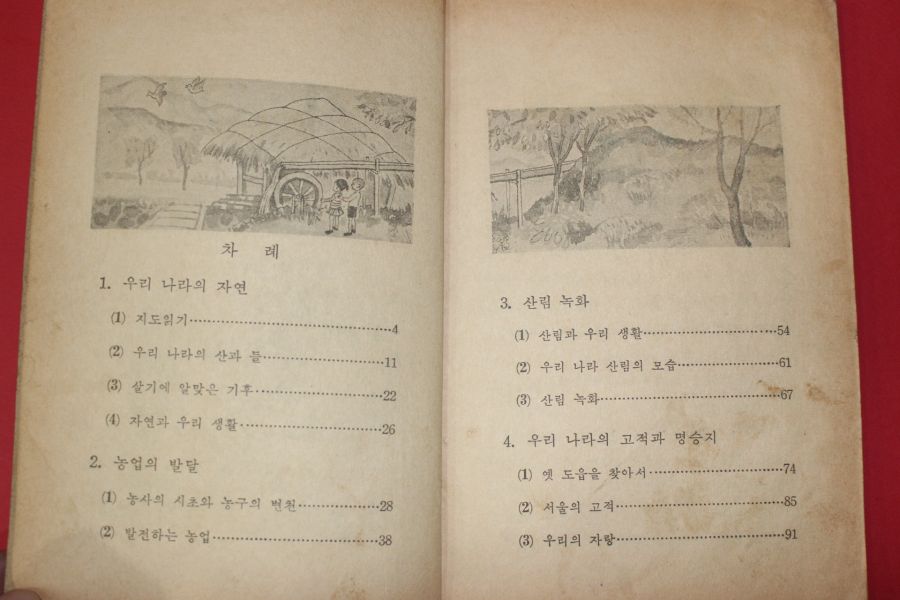 차 례
1. 우리 나라의 자연
(1) 지도읽기 4
(2) 우리 나라의 산과 들 11
(3) 살기에 알맞은 기후 22
(4) 자연과 우리 생활 26
2. 농업의 발달
(1) 농사의 시초와 농구의 변천 28
(2) 발전하는 농업 38
3. 산림 녹화
(1) 산림과 우리 생활 54
(2) 우리 나라 산림의 모습 61
(3) 산림 녹화 67
4. 우리 나라의 고적과 명승지
(1) 옛 도읍을 찾아서 74
(2) 서울의 고적 85
(3) 우리의 자랑 91